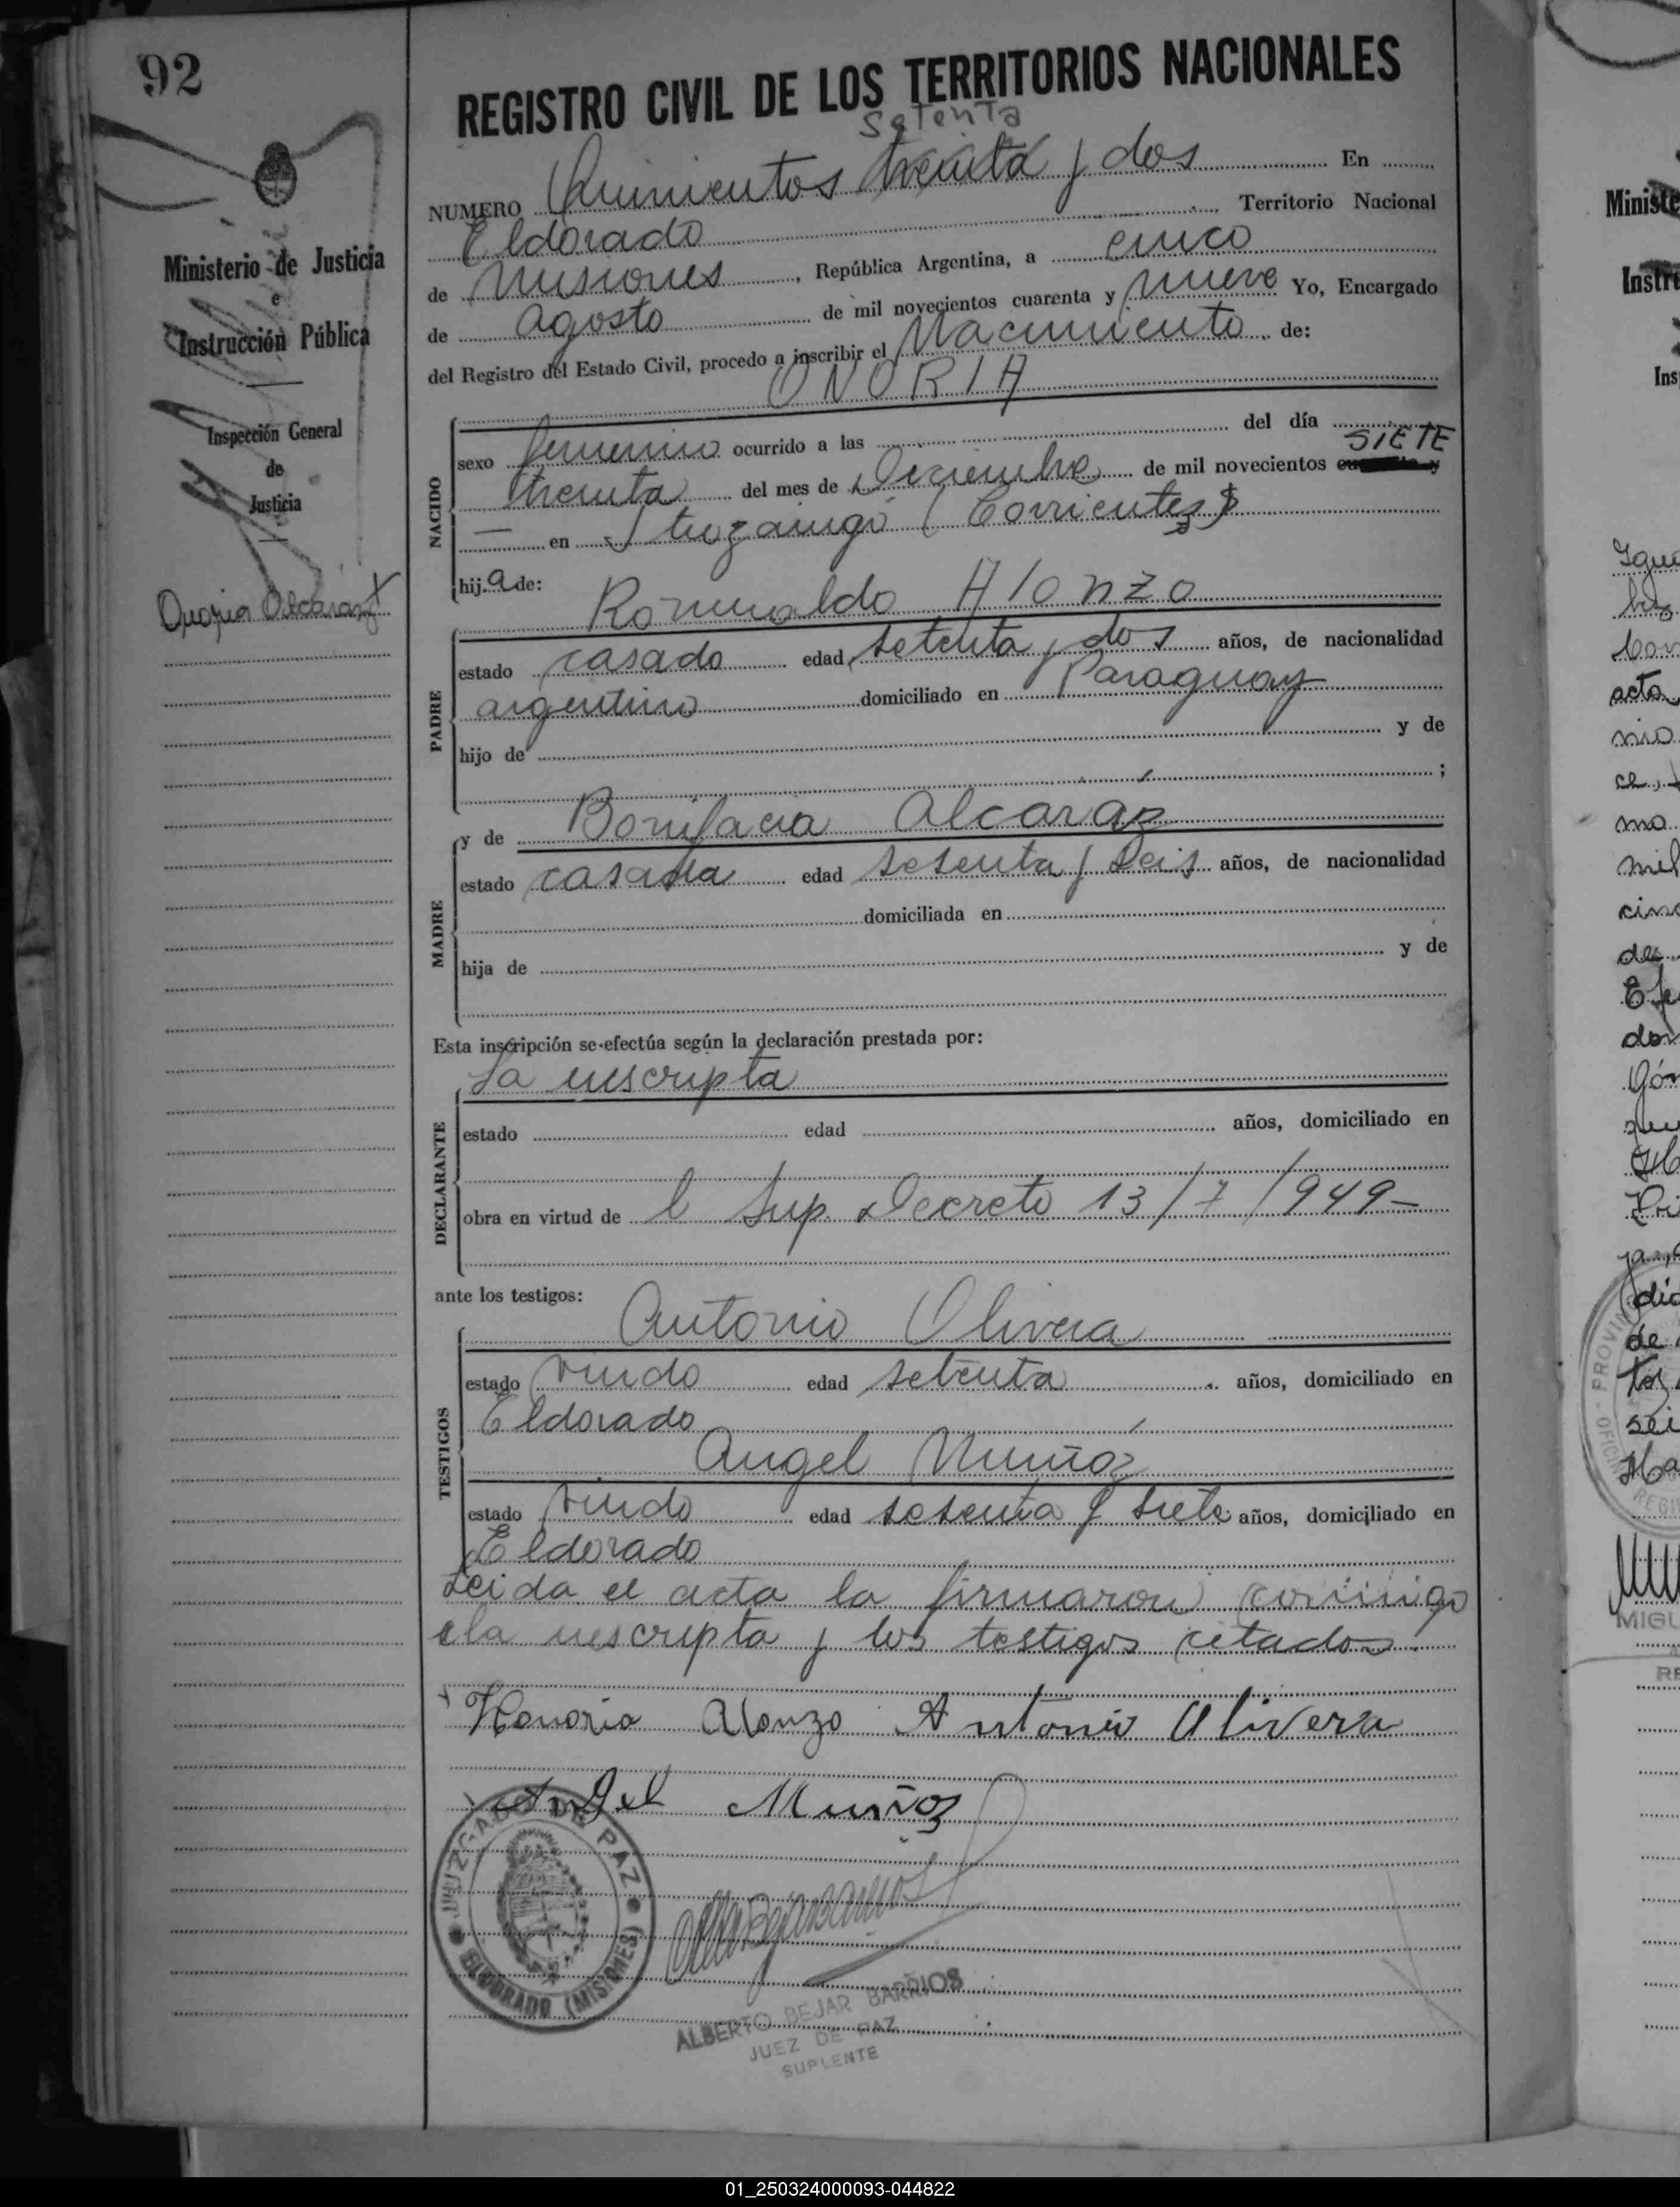 92
REGISTRO CIVIL DE LOS TERRITORIOS NACIONALES
setenta
NUMERO Quinientos treinta y dos En
Eldorado Territorio Nacional
de Misiones, República Argentina, a cinco
de agosto de mil novecientos cuarenta y nueve Yo, Encargado
del Registro del Estado Civil, procedo a inscribir el Nacimiento de:
ONORIA
Ministerio de Justicia
e
Instrucción Pública
Inspección General
de
Justicia
Onoria Alcaraz
NACIDO
sexo femenino ocurrido a las del día
SIETE
treinta del mes de Diciembre de mil novecientos
— en Ituzaingó (Corrientes)
hij a de: Romualdo Alonzo
PADRE
estado casado edad setenta y dos años, de nacionalidad
argentino domiciliado en Paraguay
hijo de y de
;
MADRE
y de Bonifacia Alcaráz
estado casada edad sesenta y seis años, de nacionalidad
domiciliada en
hija de y de
Esta inscripción se efectúa según la declaración prestada por:
La inscripta
DECLARANTE
estado edad años, domiciliado en
obra en virtud de l Sup. Decreto 13/7/949-
ante los testigos:
TESTIGOS
Antonio Olivera
estado viudo edad setenta años, domiciliado en
Eldorado
Angel Muñóz
estado viudo edad sesenta y siete años, domiciliado en
Eldorado
Leida el acta la firmaron conmigo
la inscripta y los testigos citados.
Honoria Alonzo Antonio Olivera
Angel Muñoz
JUZGADO DE PAZ
ELDORADO (MISIONES)
ALBERTO BEJAR BARRIOS
JUEZ DE PAZ
SUPLENTE
01_250324000093-044822